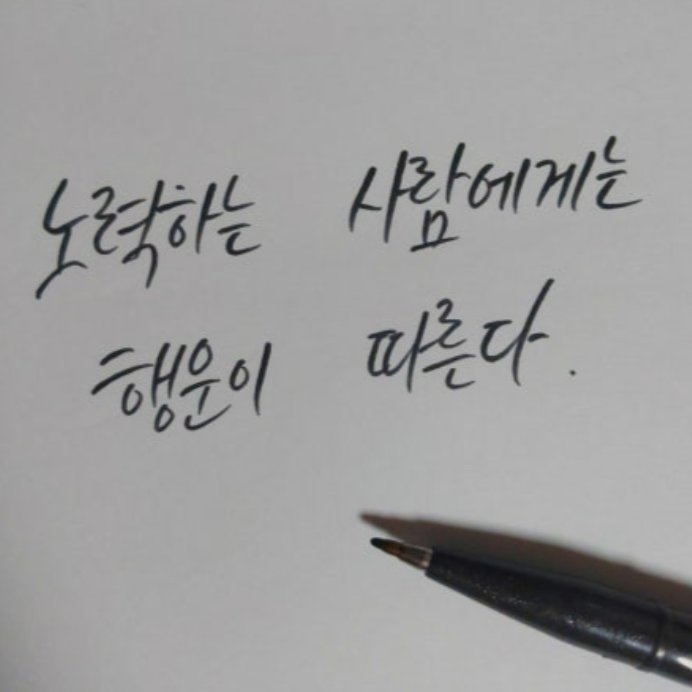 노력하는 사람에게는
행운이 따른다.